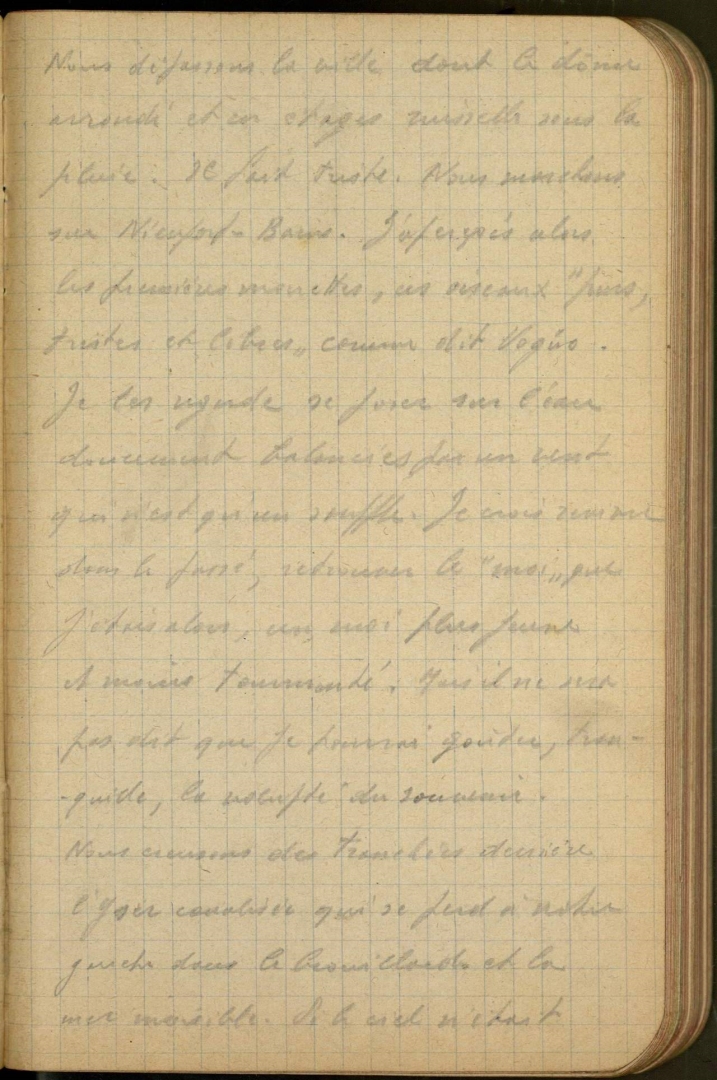 Nous dépassons la ville dont le dôme
arrondi et en étages ruisselle sous la
pluie. Il fait triste. Nous marchons
sur Nieuport-Bains. J'aperçois alors
les premières mouettes, ces oiseaux "purs,
tristes et libres" comme dit Vogüé.
Je les regarde se poser sur l'eau
doucement balancées par un vent
qui n'est qu'un souffle. Je crois revivre
dans le passé, retrouver le "moi" que
j'étais alors, un moi plus jeune
et moins tourmenté. Mais il ne sera
pas dit que je pourrai goûter, tran-
-quille, la volupté du souvenir.
Nous creusons des tranchées derrière
l'Yser canalisée qui se perd à notre
gauche dans le brouillard et la
mer invisible. Si le ciel n'était